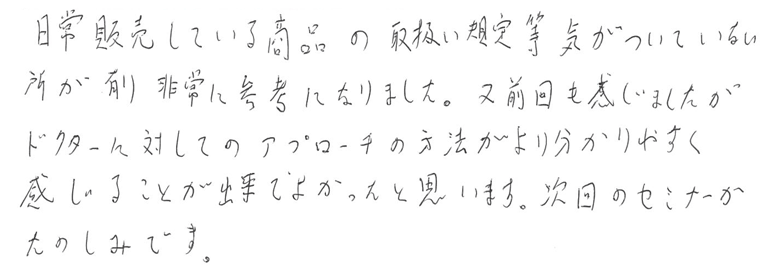 日常販売している商品の取扱い規定等気がついていない
所が有り非常に参考になりました。又前回も感じましたが
ドクターに対してのアプローチの方法がより分かりやすく
感じることが出来てよかったと思います。次回のセミナーが
たのしみです。